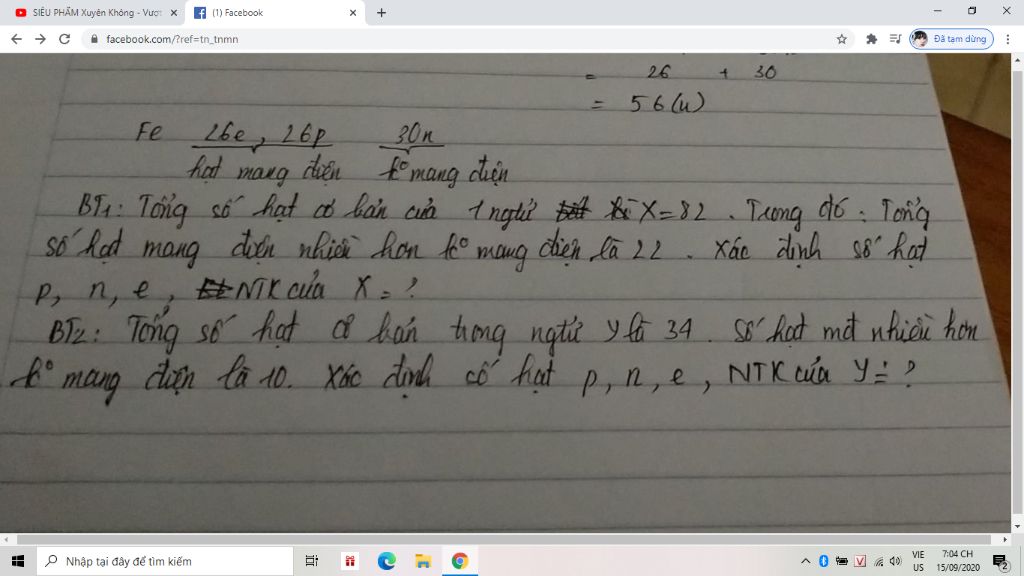 SIÊU PHẨM Xuyên Không - Vượt
(1) Facebook
facebook.com/?ref=tn_tnmn
Đã tạm dừng
= 26 + 30
= 56(u)
Fe 26e, 26p 30n
hạt mang điện ko mang điện
BT1: Tổng số hạt cơ bản của 1 ngtử X = 82. Trong đó: Tổng
số hạt mang điện nhiều hơn ko mang điện là 22. Xác định số hạt
p, n, e, NTK của X = ?
BT2: Tổng số hạt cơ bản trong ngtử Y là 34. Số hạt mđ nhiều hơn
ko mang điện là 10. Xác định số hạt p, n, e, NTK của Y = ?
Nhập tại đây để tìm kiếm
VIE
US
7:04 CH
15/09/2020
2